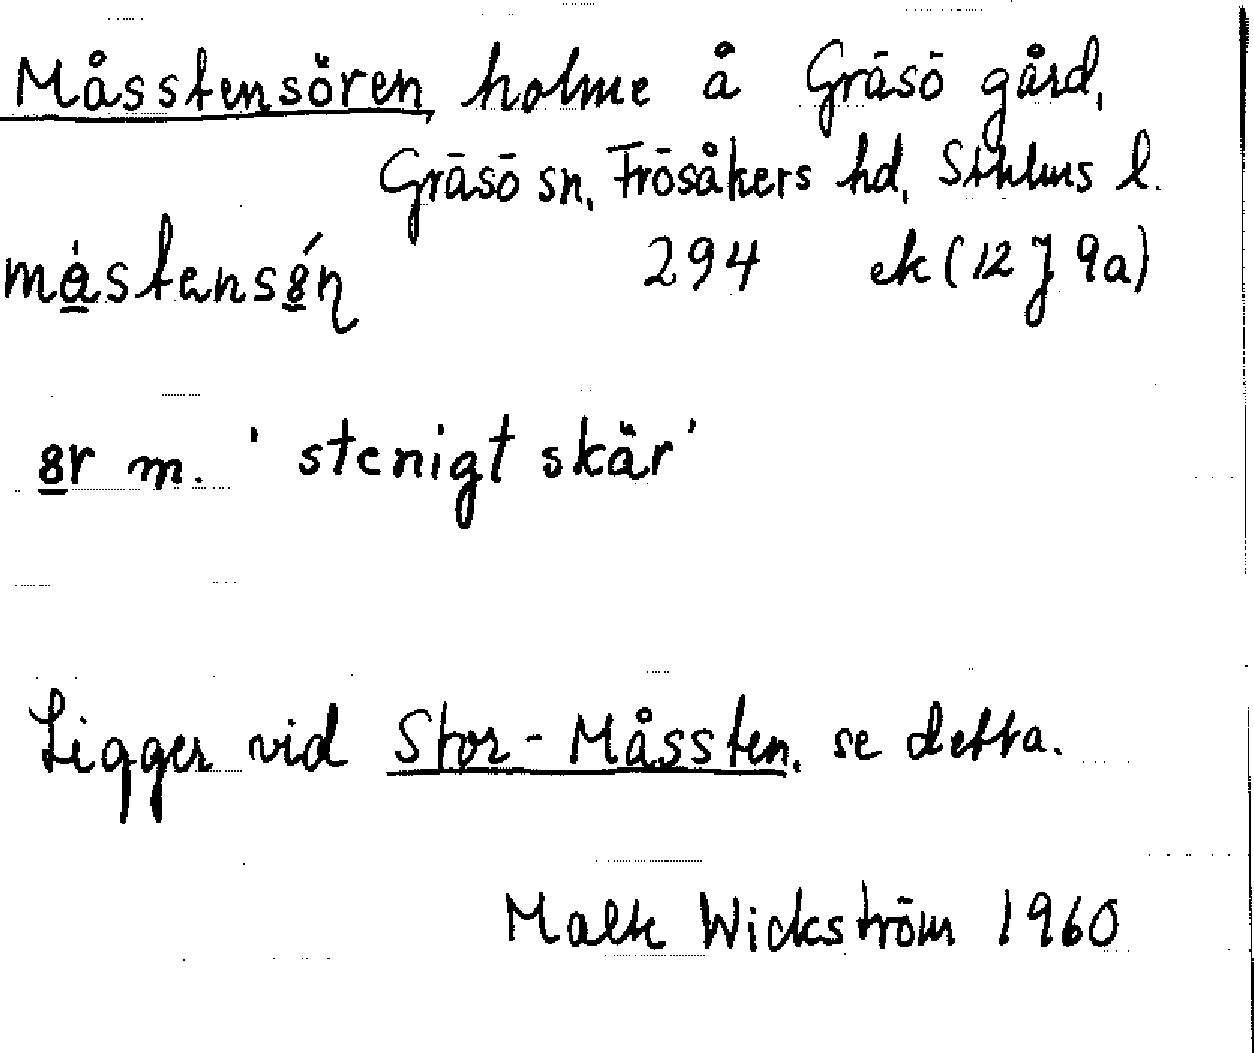 Måsstensören, holme å Gräsö gård,
Gräsö sn, Frösåkers hd, Sthlms l.
må̀stensǿn 294 ek (12 J 9a)
ør m. 'stenigt skär'
Ligger vid Stor-Måssten, se detta.
Malte Wickström 1960